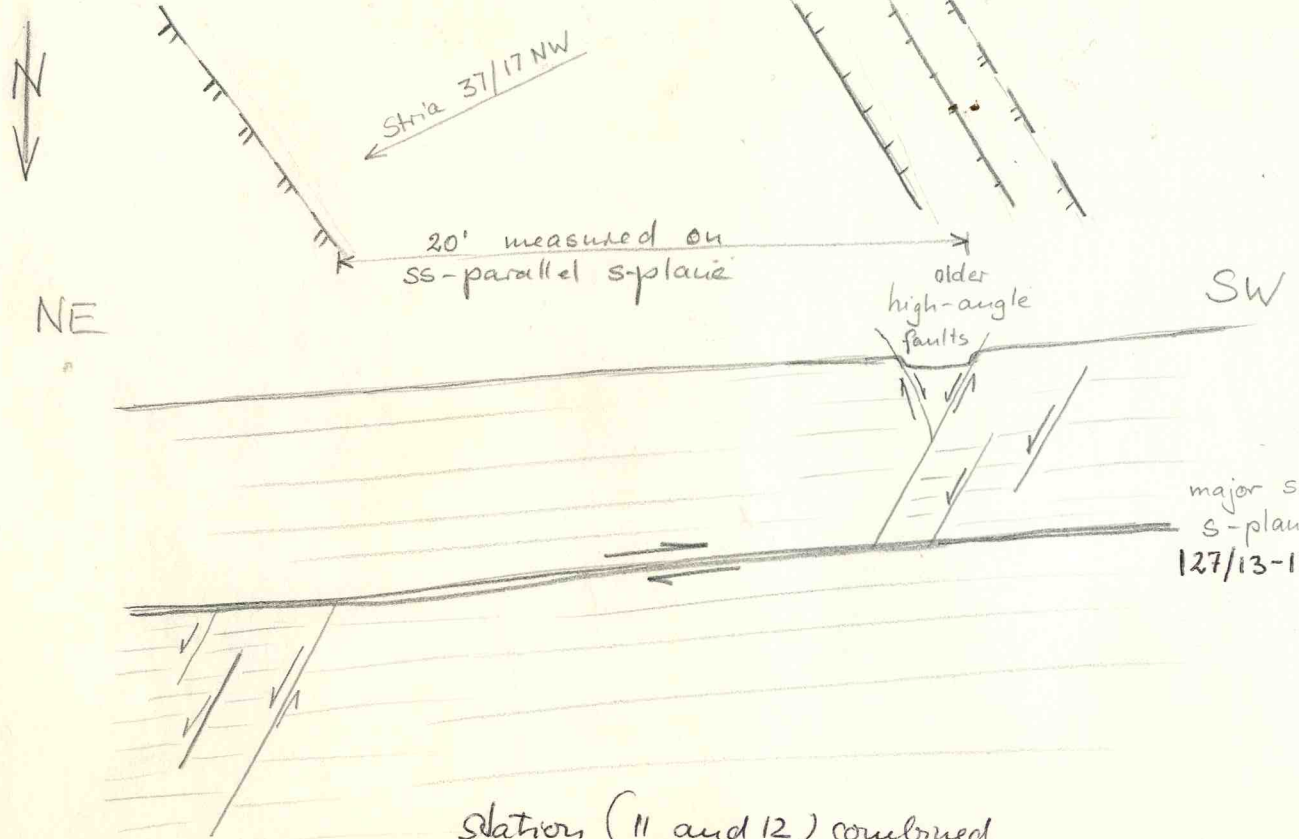 N
Stria 37/17 NW
20' measured on
ss-parallel s-plane
older
high-angle
faults
NE
SW
major s
s-plan
127/13-1
station (11 and 12) combined